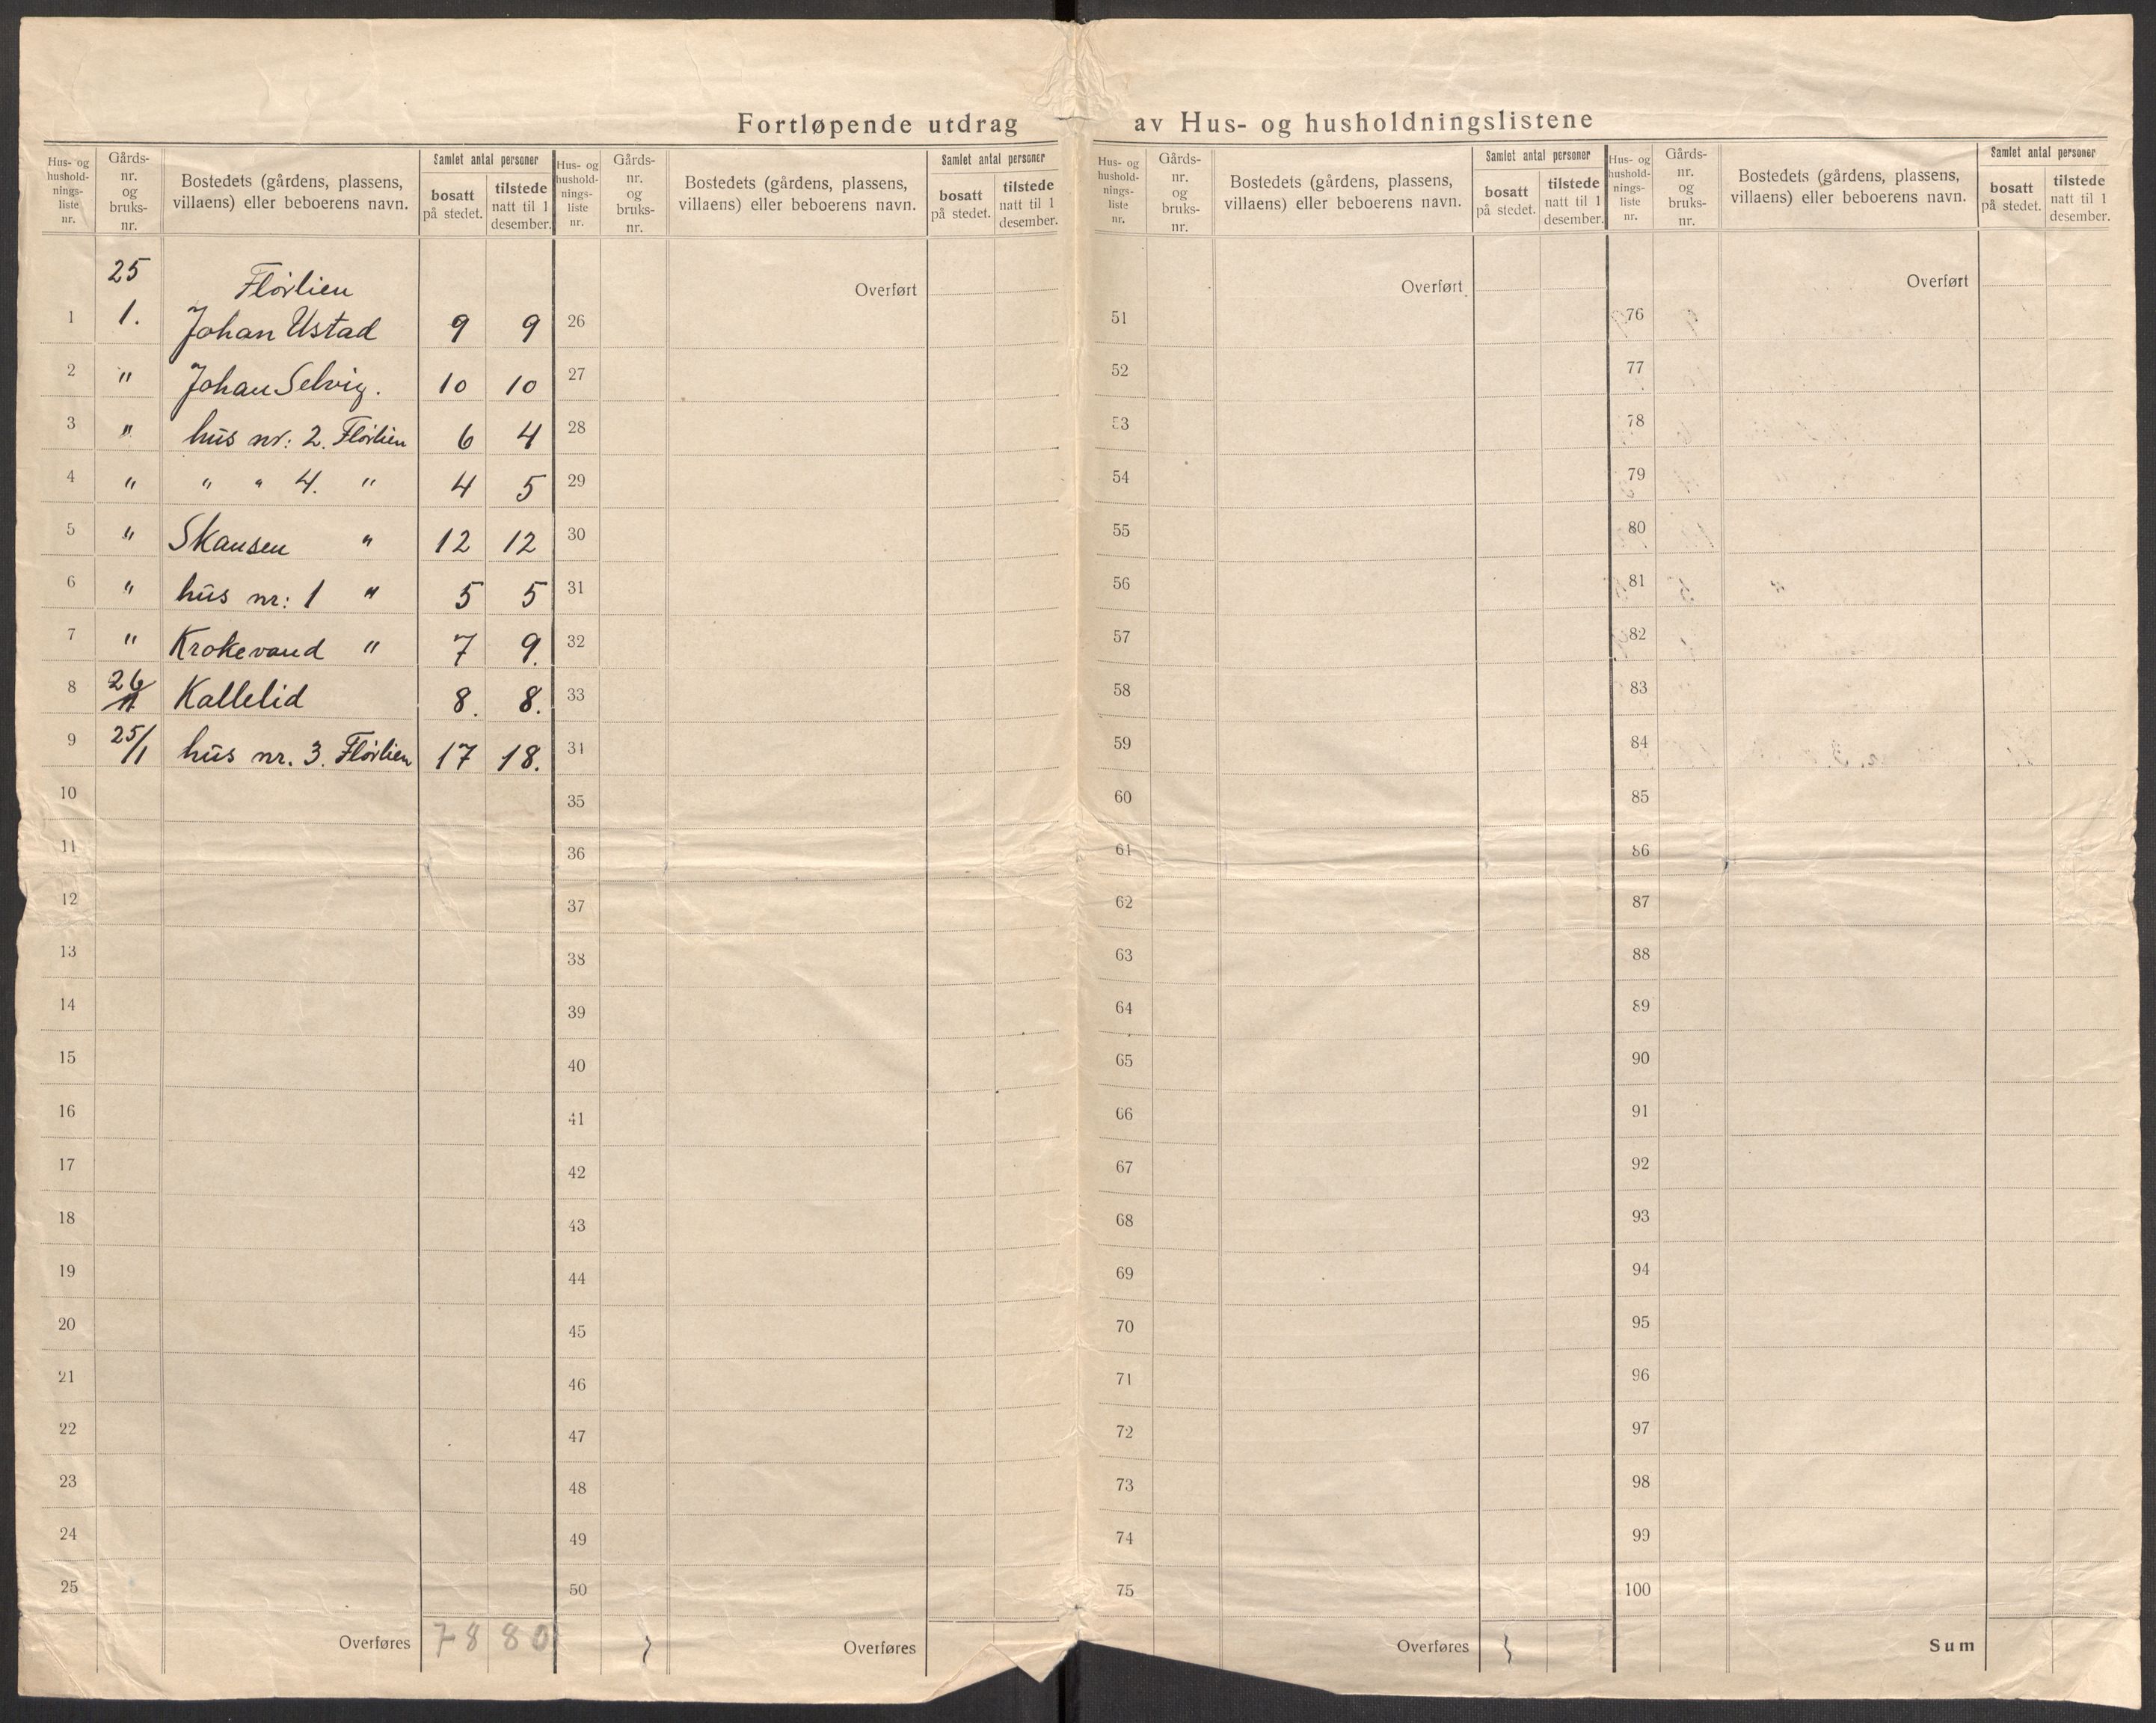 Fortløpende utdrag av Hus- og husholdningslistene
Hus- og hushold-nings-liste nr. | Gårds-nr. og bruks-nr. | Bostedets (gårdens, plassens, villaens) eller beboerens navn. | Samlet antal personer | bosatt på stedet. | tilstede natt til 1 desember.
25 Flörlien
1 1. Johan Ustad 9 9
2 " Johan Selvig. 10 10
3 " hus nr: 2. Flörlien 6 4
4 " " " 4. " 4 5
5 " Skansen " 12 12
6 " hus nr: 1 " 5 5
7 " Krokevand " 7 9.
8 26/1 Kallelid 8. 8.
9 25/1 hus nr. 3. Flörlien 17 18.
10
11
12
13
14
15
16
17
18
19
20
21
22
23
24
25
Overføres 78 80
Hus- og hushold-nings-liste nr. | Gårds-nr. og bruks-nr. | Bostedets (gårdens, plassens, villaens) eller beboerens navn. | Samlet antal personer | bosatt på stedet. | tilstede natt til 1 desember.
Overført
26
27
28
29
30
31
32
33
31
35
36
37
38
39
40
41
42
43
44
45
46
47
48
49
50
Overføres
Hus- og hushold-nings-liste nr. | Gårds-nr. og bruks-nr. | Bostedets (gårdens, plassens, villaens) eller beboerens navn. | Samlet antal personer | bosatt på stedet. | tilstede natt til 1 desember.
Overført
51
52
53
54
55
56
57
58
59
60
61
62
63
64
65
66
67
68
69
70
71
72
73
74
75
Overføres
Hus- og hushold-nings-liste nr. | Gårds-nr. og bruks-nr. | Bostedets (gårdens, plassens, villaens) eller beboerens navn. | Samlet antal personer | bosatt på stedet. | tilstede natt til 1 desember.
Overført
76
77
78
79
80
81
82
83
84
85
86
87
88
89
90
91
92
93
94
95
96
97
98
99
100
Sum